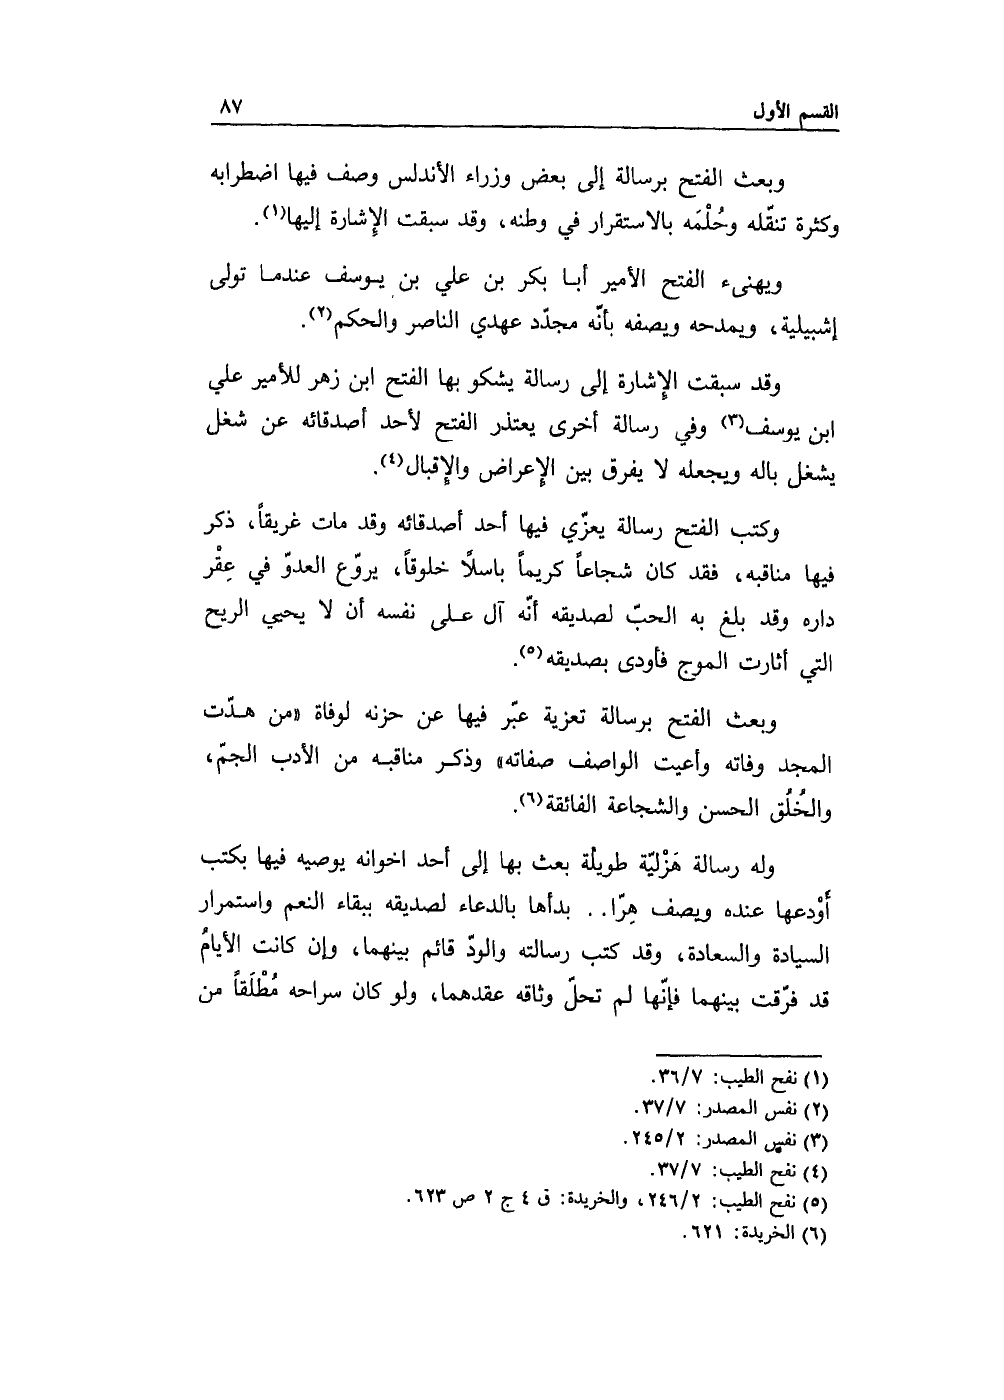 القسم الأول ٨٧
وبعث الفتح برسالة إلى بعض وزراء الأندلس وصف فيها اضطرابه
وكثرة تنقّله وحُلْمَه بالاستقرار في وطنه، وقد سبقت الإشارة إليها(١).
ويهنىء الفتح الأمير أبا بكر بن علي بن يوسف عندما تولى
إشبيلية، ويمدحه ويصفه بأنّه مجدّد عهدي الناصر والحكم(٢).
وقد سبقت الإشارة إلى رسالة يشكو بها الفتح ابن زهر للأمير علي
ابن يوسف(٣) وفي رسالة أخرى يعتذر الفتح لأحد أصدقائه عن شغل
يشغل باله ويجعله لا يفرق بين الإعراض والإقبال(٤).
وكتب الفتح رسالة يعزّي فيها أحد أصدقائه وقد مات غريقاً، ذكر
فيها مناقبه، فقد كان شجاعاً كريماً باسلًا خلوقاً، يروّع العدوّ في عِقْر
داره وقد بلغ به الحبّ لصديقه أنّه آل على نفسه أن لا يحيي الريح
التي أثارت الموج فأودى بصديقه(٥).
وبعث الفتح برسالة تعزية عبّر فيها عن حزنه لوفاة «من هدّت
المجد وفاته وأعيت الواصف صفاته» وذكر مناقبه من الأدب الجمّ،
والخُلُق الحسن والشجاعة الفائقة(٦).
وله رسالة هَزْليّة طويلة بعث بها إلى أحد اخوانه يوصيه فيها بكتب
أَوْدعها عنده ويصف هِرّا.. بدأها بالدعاء لصديقه ببقاء النعم واستمرار
السيادة والسعادة، وقد كتب رسالته والودّ قائم بينهما، وإن كانت الأيامُ
قد فرّقت بينهما فإنّها لم تحلّ وثاقه عقدهما، ولو كان سراحه مُطْلَقاً من
(١) نفح الطيب: ٣٦/٧.
(٢) نفس المصدر: ٣٧/٧.
(٣) نفس المصدر: ٢٤٥/٢.
(٤) نفح الطيب: ٣٧/٧.
(٥) نفح الطيب: ٢٤٦/٢، والخريدة: ق ٤ ج ٢ ص ٦٢٣.
(٦) الخريدة: ٦٢١.